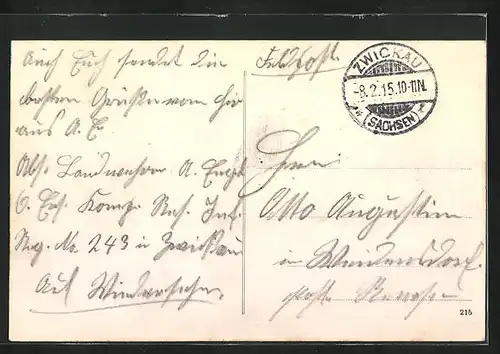 Auch Euch sendet die
besten Grüße von hier
aus A. E
Abs. Landwehrm. A.
6. Ers. Komp. Res. Inf.
Reg. No. 243 in Zwickau
Auf Wiedersehn.
Feldpost.
ZWICKAU
-8.2.15.10-11N.
(SACHSEN)
Herrn
Otto Augustin
in
post
215